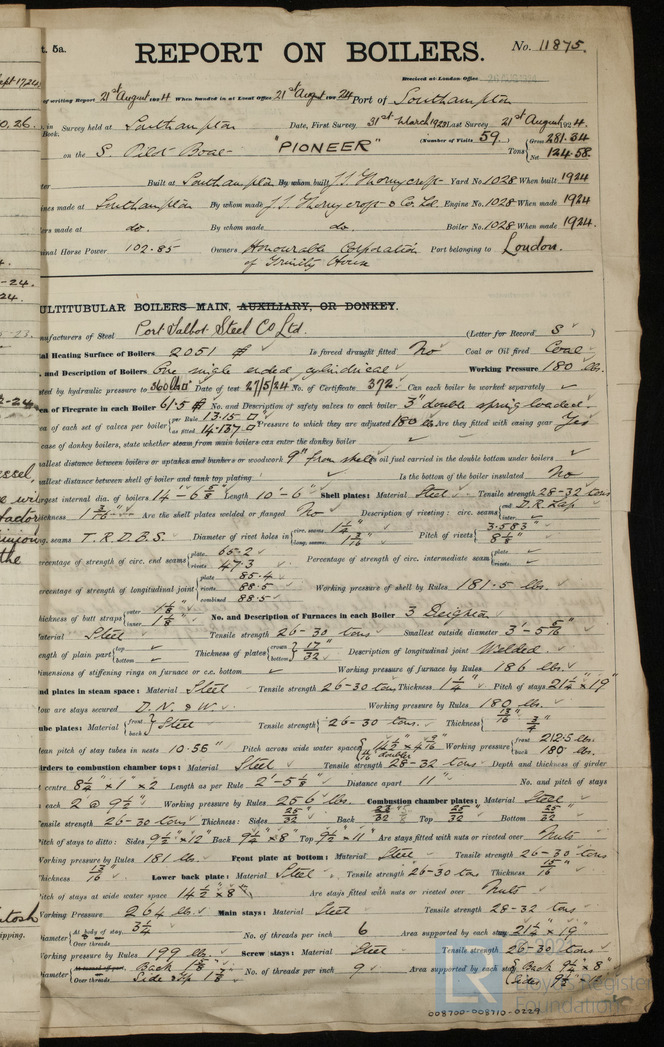 t. 5a.
REPORT ON BOILERS. No. 11875.
Received at London Office
of writing Report 21st August 1924 When handed in at Local Office 21st August 1924 Port of Southampton
Book. in Survey held at Southampton Date, First Survey 31st March 1923 Last Survey 21st August 1924
on the S. Pilot Boat "PIONEER" (Number of Visits 59.) Tons { Gross 281.34 Net 124.58
Built at Southampton By whom built J. I. Thornycroft Yard No. 1028 When built 1924
ines made at Southampton By whom made J. I. Thornycroft & Co. Ld. Engine No. 1028 When made 1924
ers made at do. By whom made do. Boiler No. 1028 When made 1924.
inal Horse Power 102.85 Owners Honourable Corporation of Trinity House Port belonging to London.
ULTITUBULAR BOILERS MAIN, AUXILIARY, OR DONKEY.
nufacturers of Steel Port Talbot Steel Co Ltd. (Letter for Record S )
al Heating Surface of Boilers 2051 Is forced draught fitted No Coal or Oil fired Coal
. and Description of Boilers One single ended cylindrical Working Pressure 180 lbs.
ted by hydraulic pressure to 360 lbs Date of test 27/5/24 No. of Certificate 372. Can each boiler be worked separately ✓
ea of Firegrate in each Boiler 61.5 No. and Description of safety valves to each boiler 3" double spring loaded.
ea of each set of valves per boiler { per Rule 13.15 as fitted 14.137 Pressure to which they are adjusted 180 lbs Are they fitted with easing gear Yes
ease of donkey boilers, state whether steam from main boilers can enter the donkey boiler ✓
allest distance between boilers or uptakes and bunkers or woodwork 9" from shell oil fuel carried in the double bottom under boilers ✓
allest distance between shell of boiler and tank top plating ✓ Is the bottom of the boiler insulated No
rgest internal dia. of boilers 14'-6 5/8 Length 10'-6" Shell plates: Material Steel Tensile strength 28-32 tons
ickness 1 3/16 Are the shell plates welded or flanged No Description of riveting: circ. seams { end D.R. Lap inter. ✓
g. seams T.R.D.B.S. Diameter of rivet holes in { circ. seams 1 1/4 long. seams 1 3/16 Pitch of rivets { 3.583" 8 1/8
ercentage of strength of circ. end seams { plate 65.2 rivets 47.3 Percentage of strength of circ. intermediate seam { plate ✓ rivets ✓
ercentage of strength of longitudinal joint { plate 85.4 rivets 88.5 combined 88.5 Working pressure of shell by Rules 181.5 lbs.
hickness of butt straps { outer 1 1/8 inner 1 1/8 No. and Description of Furnaces in each Boiler 3 Deighton
aterial Steel Tensile strength 26-30 tons Smallest outside diameter 3'-5 5/16
ength of plain part { top ✓ bottom ✓ Thickness of plates { crown bottom } 17/32 Description of longitudinal joint Welded.
imensions of stiffening rings on furnace or c.c. bottom ✓ Working pressure of furnace by Rules 186 lbs.
nd plates in steam space: Material Steel Tensile strength 26-30 tons Thickness 1 1/4 Pitch of stays 21 1/4 x 19"
ow are stays secured D.N. & W. Working pressure by Rules 180 lbs.
ube plates: Material { front back } Steel Tensile strength { 26-30 tons. Thickness { 13/16 3/4"
ean pitch of stay tubes in nests 10.56" Pitch across wide water spaces Working pressure { front 212.5 lbs. back 180 lbs.
irders to combustion chamber tops: Material Steel Tensile strength 28-32 tons Depth and thickness of girder
t centre 8 1/4" x 1" x 2 Length as per Rule 2'-5 1/8" Distance apart 11" No. and pitch of stays
n each 2 @ 9 1/2" Working pressure by Rules 256 lbs. Combustion chamber plates: Material Steel
ensile strength 26-30 tons Thickness: Sides 25/32" Back 23/32 Top 25/32 Bottom 25/32"
itch of stays to ditto: Sides 9 1/2" x 12" Back 9 1/4" x 8" Top 9 1/2" x 11" Are stays fitted with nuts or riveted over Nuts
orking pressure by Rules 181 lbs. Front plate at bottom: Material Steel Tensile strength 26-30 tons
hickness 13/16 Lower back plate: Material Steel Tensile strength 26-30 tons Thickness 15/16"
itch of stays at wide water space 14 1/2" x 8" Are stays fitted with nuts or riveted over Nuts
orking Pressure 264 lbs. Main stays: Material Steel Tensile strength 28-32 tons
iameter { At body of stay, 3 1/4 Over threads No. of threads per inch 6 Area supported by each stay 21 1/2 x 19
orking pressure by Rules 199 lbs. Screw stays: Material Steel Tensile strength 26-30 tons
iameter { At turned off part, Over threads Back 1 5/8 Side & Top 1 3/8 No. of threads per inch 9 Area supported by each stay { Back 9 1/4 x 8" Sides 9 1/2
LR
Lloyd's Register
Foundation
008700-008710-0229